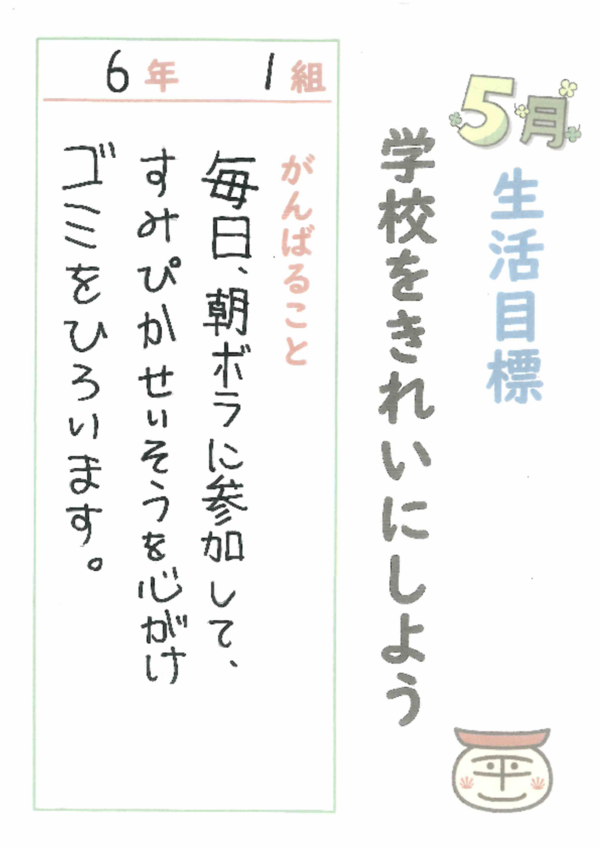 5月
生活目標
学校をきれいにしよう
6年 1組
がんばること
毎日、朝ボラに参加して、
すみぴかせいそうを心がけ
ゴミをひろいます。